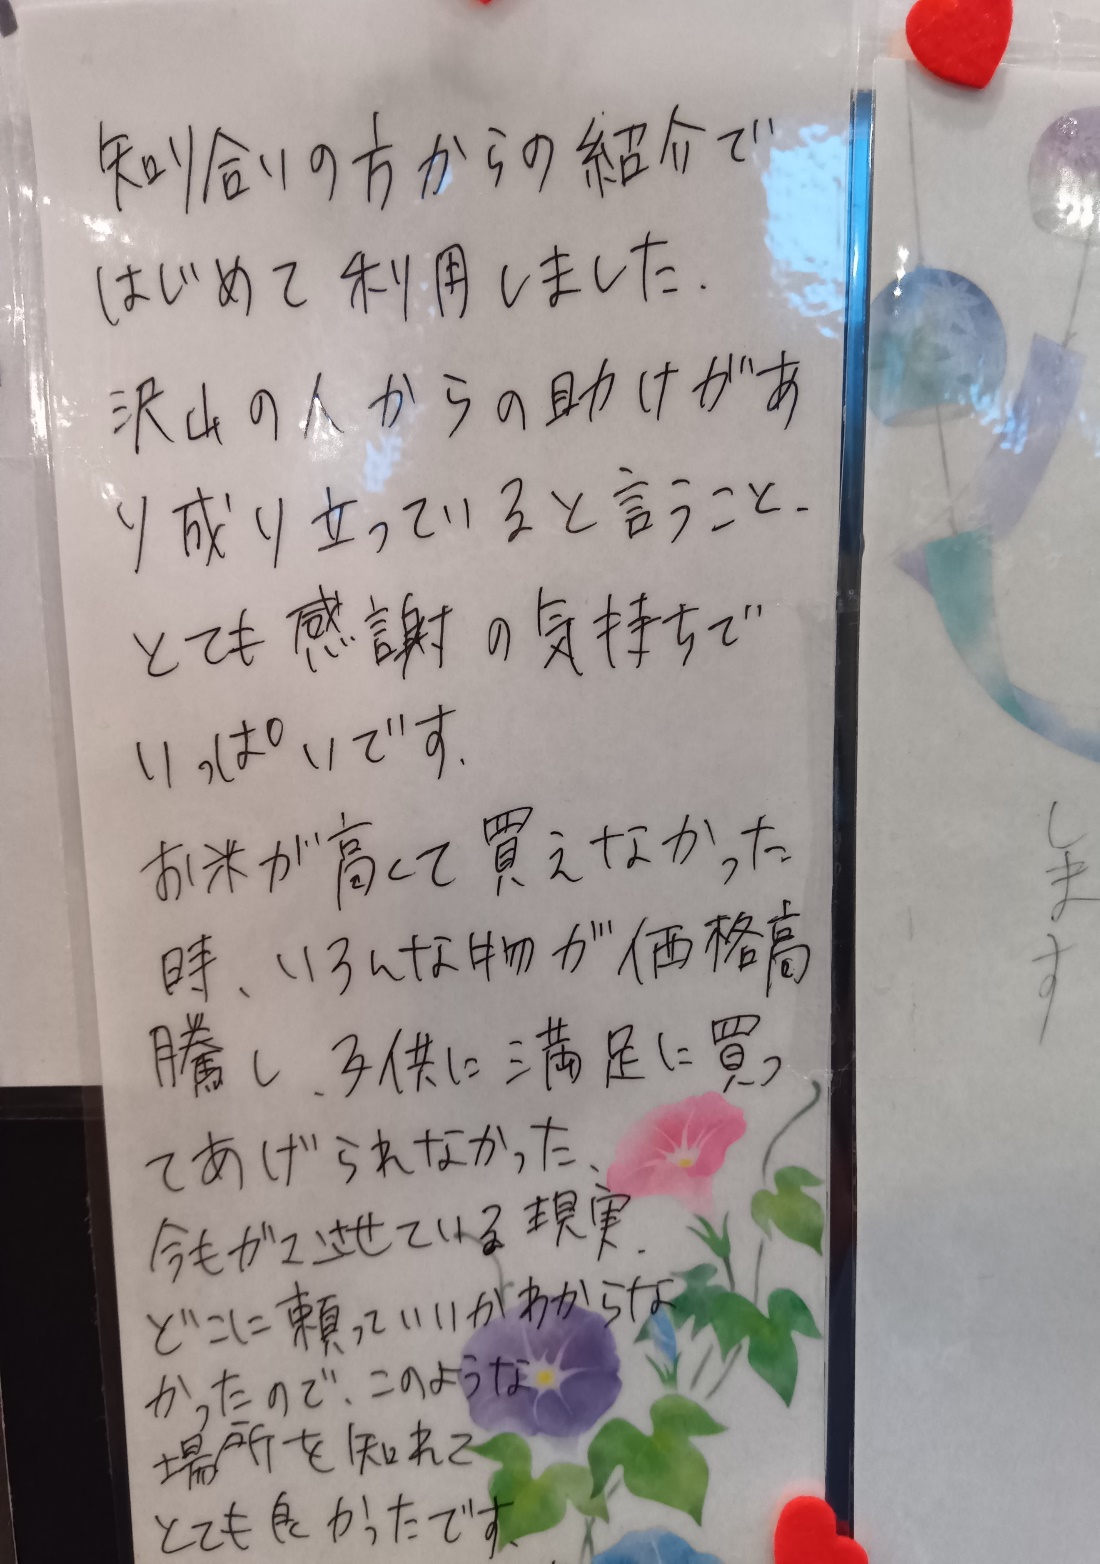 知り合りの方からの紹介で
はじめて利用しました.
沢山の人からの助けがあ
り成り立っていると言うこと、
とても感謝の気持ちで
いっぱいです.
お米が高くて買えなかった
時、いろんな物が価格高
騰し、子供に満足に買っ
てあげられなかった、
今もがせている現実.
どこに頼っていいかわからな
かったので、このような
場所を知れて
とても良かったです
します